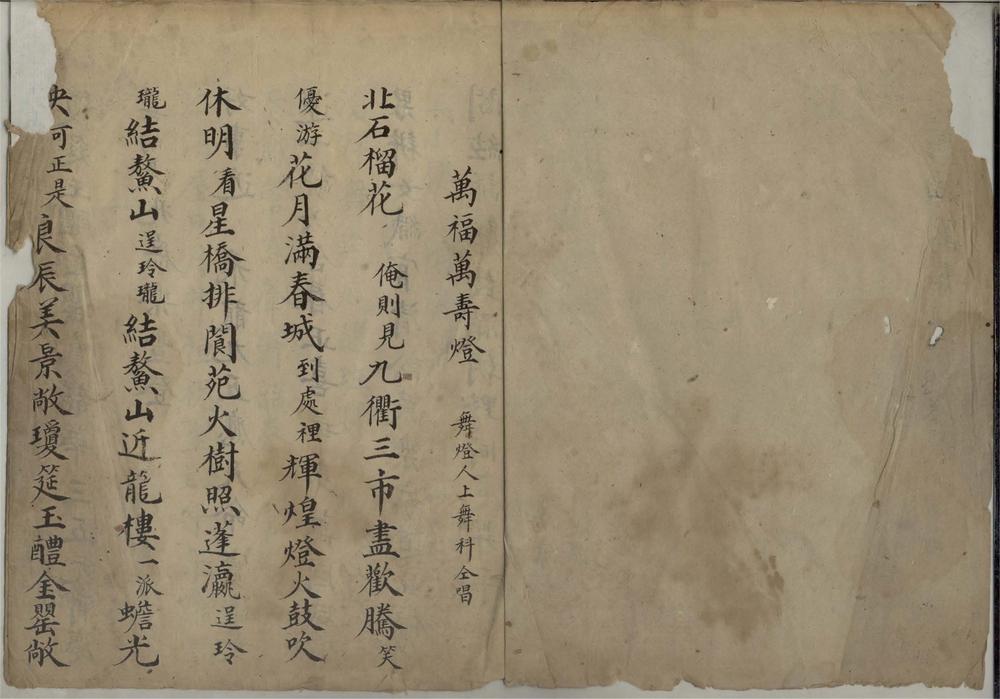 萬福萬壽燈 舞燈人上舞科仝唱
北石榴花 俺則見九衢三市盡歡騰笑
優游花月滿春城到處裡輝煌燈火鼓吹
休明看星橋排閬苑火樹照蓬瀛逞玲
瓏結鰲山逞玲瓏結鰲山近龍樓一派蟾光
央可正是良辰美景敞瓊筵玉醴金罌敞